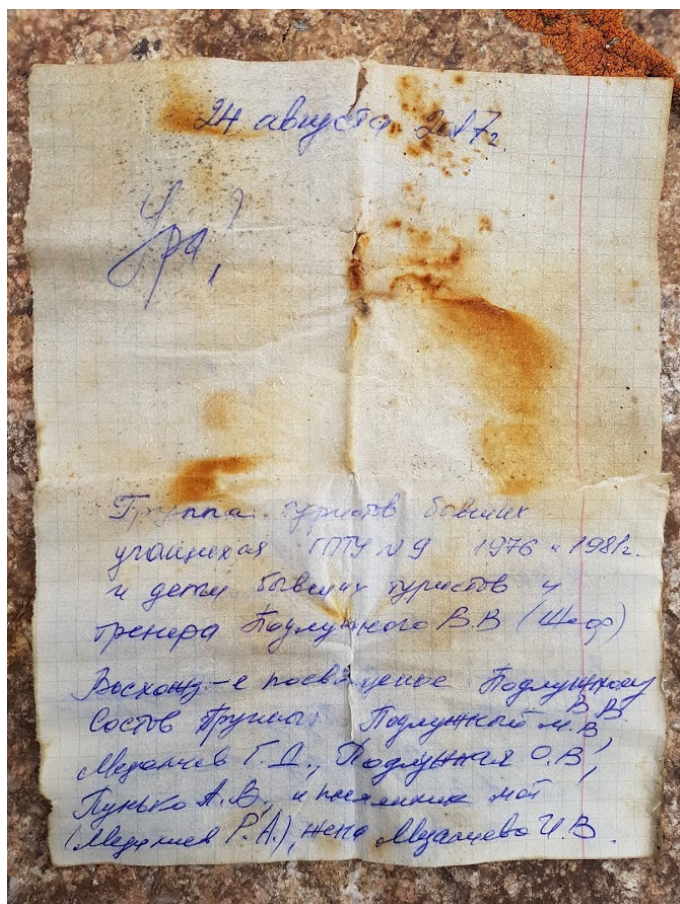 24 августа 2017г.
Ура!
Группа туристов бывших
учащихся ГПТУ №9 1976 и 1981г.
и дети бывших туристов и
тренера Подлужного В.В (Шеф)
Восхожд-е посвящение Подлужному
В.В.
Состав группы: Подлужный М.В,
Г.Д., Подлужная О.В,
Пунько А.В., и мой
Р.А.), жена И.В.